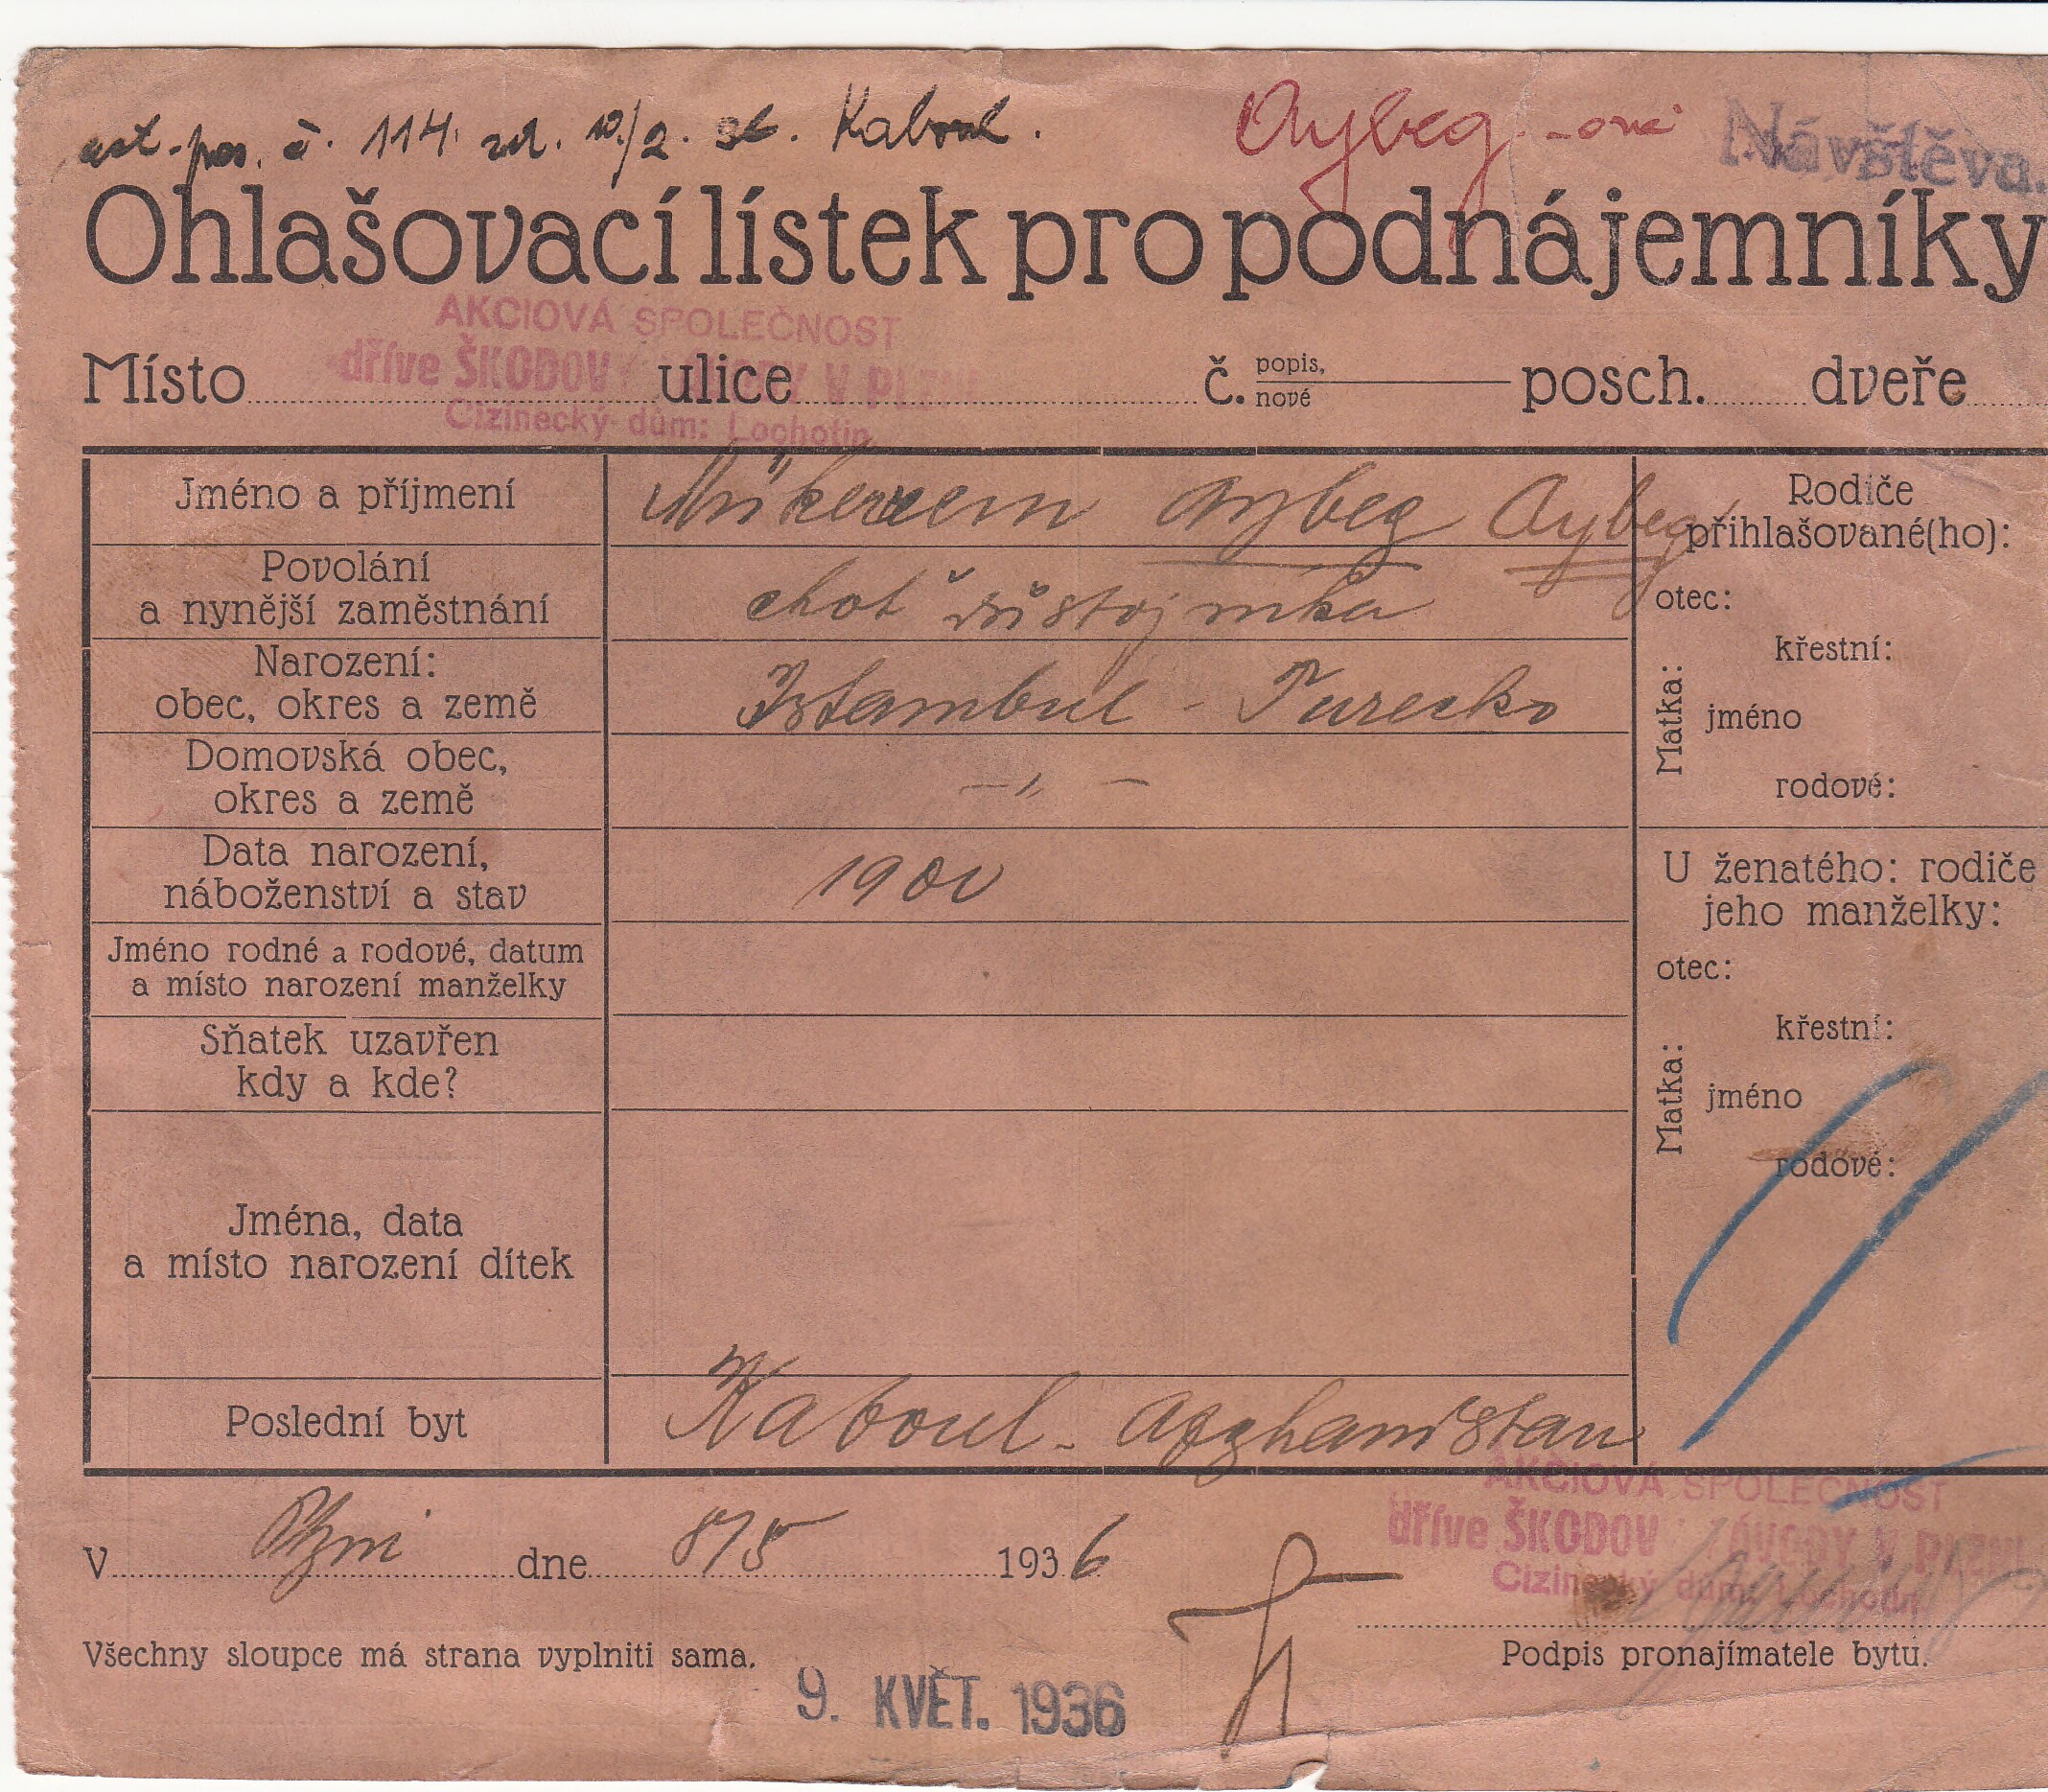 č. 114. 10/2. Kaboul.
Aybeg -ová
Návštěva.
Ohlašovací lístek pro podnájemníky
AKCIOVÁ SPOLEČNOST
dříve ŠKODOVY ZÁVODY V PLZNI
Cizinecký dům: Lochotín
Místo ulice č. popis, nové posch. dveře
Jméno a příjmení
Mükerrem Aybeg Aybeg
Povolání
a nynější zaměstnání
choť důstojníka
Narození:
obec, okres a země
Istambul - Turecko
Domovská obec,
okres a země
-„-
Data narození,
náboženství a stav
1900
Jméno rodné a rodové, datum
a místo narození manželky
Sňatek uzavřen
kdy a kde?
Jména, data
a místo narození dítek
Poslední byt
Kaboul - Afghanistan
Rodiče
přihlašované(ho):
otec:
Matka:
křestní:
jméno
rodové:
U ženatého: rodiče
jeho manželky:
otec:
Matka:
křestní:
jméno
rodové:
V Plzni dne 8/5 1936
AKCIOVÁ SPOLEČNOST
dříve ŠKODOVY ZÁVODY V PLZNI
Cizinecký dům: Lochotín
Všechny sloupce má strana vyplniti sama.
Podpis pronajímatele bytu.
9. KVĚT. 1936